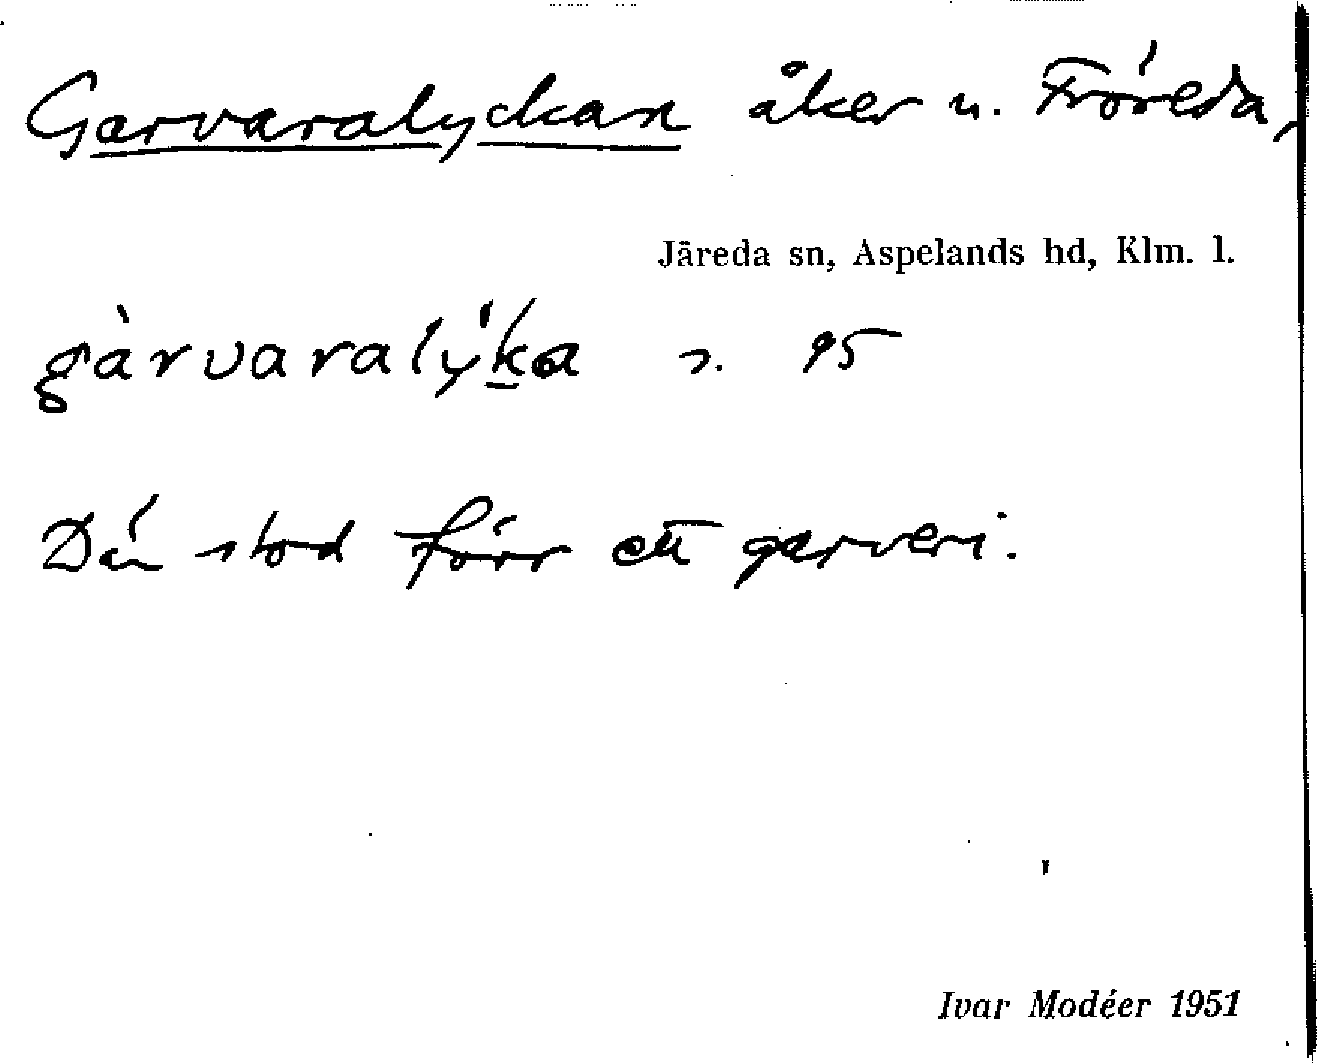 Garvaralyckan åker u. Fröreda,
Järeda sn, Aspelands hd, Klm. l.
gàrvaralýka s. 95
Där stod förr ett garveri.
Ivar Modéer 1951